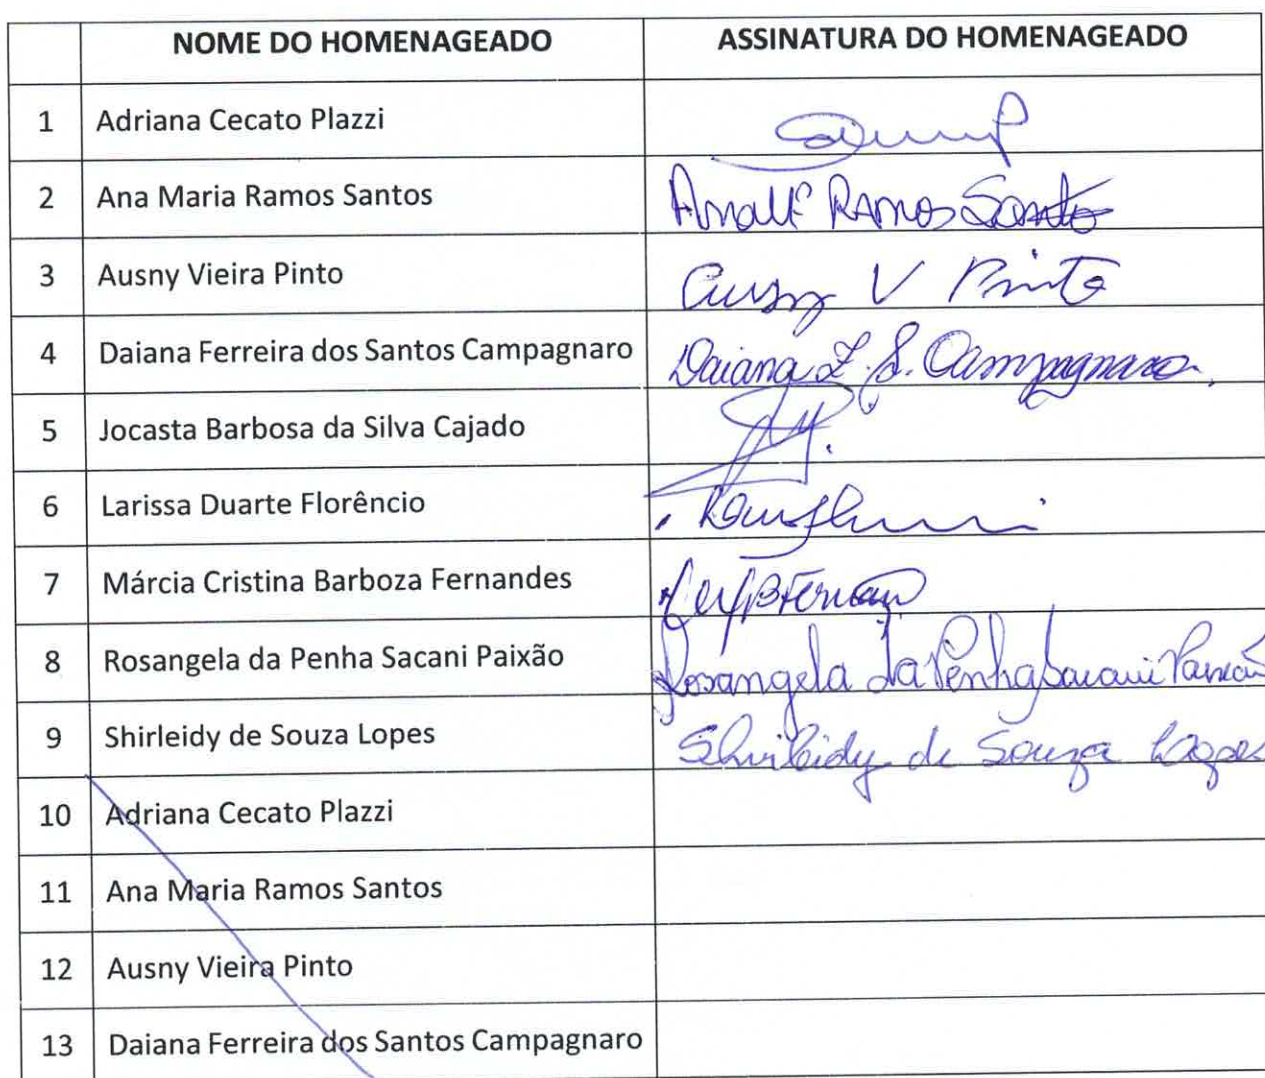 NOME DO HOMENAGEADO ASSINATURA DO HOMENAGEADO
1 Adriana Cecato Plazzi
2 Ana Maria Ramos Santos AnaMª Ramos Santos
3 Ausny Vieira Pinto Ausny V Pinto
4 Daiana Ferreira dos Santos Campagnaro Daiana F. S. Campagnaro
5 Jocasta Barbosa da Silva Cajado
6 Larissa Duarte Florêncio
7 Márcia Cristina Barboza Fernandes
8 Rosangela da Penha Sacani Paixão Rosangela da Penha Sacani Paixão
9 Shirleidy de Souza Lopes Shirleidy de Souza Lopes
10 Adriana Cecato Plazzi
11 Ana Maria Ramos Santos
12 Ausny Vieira Pinto
13 Daiana Ferreira dos Santos Campagnaro